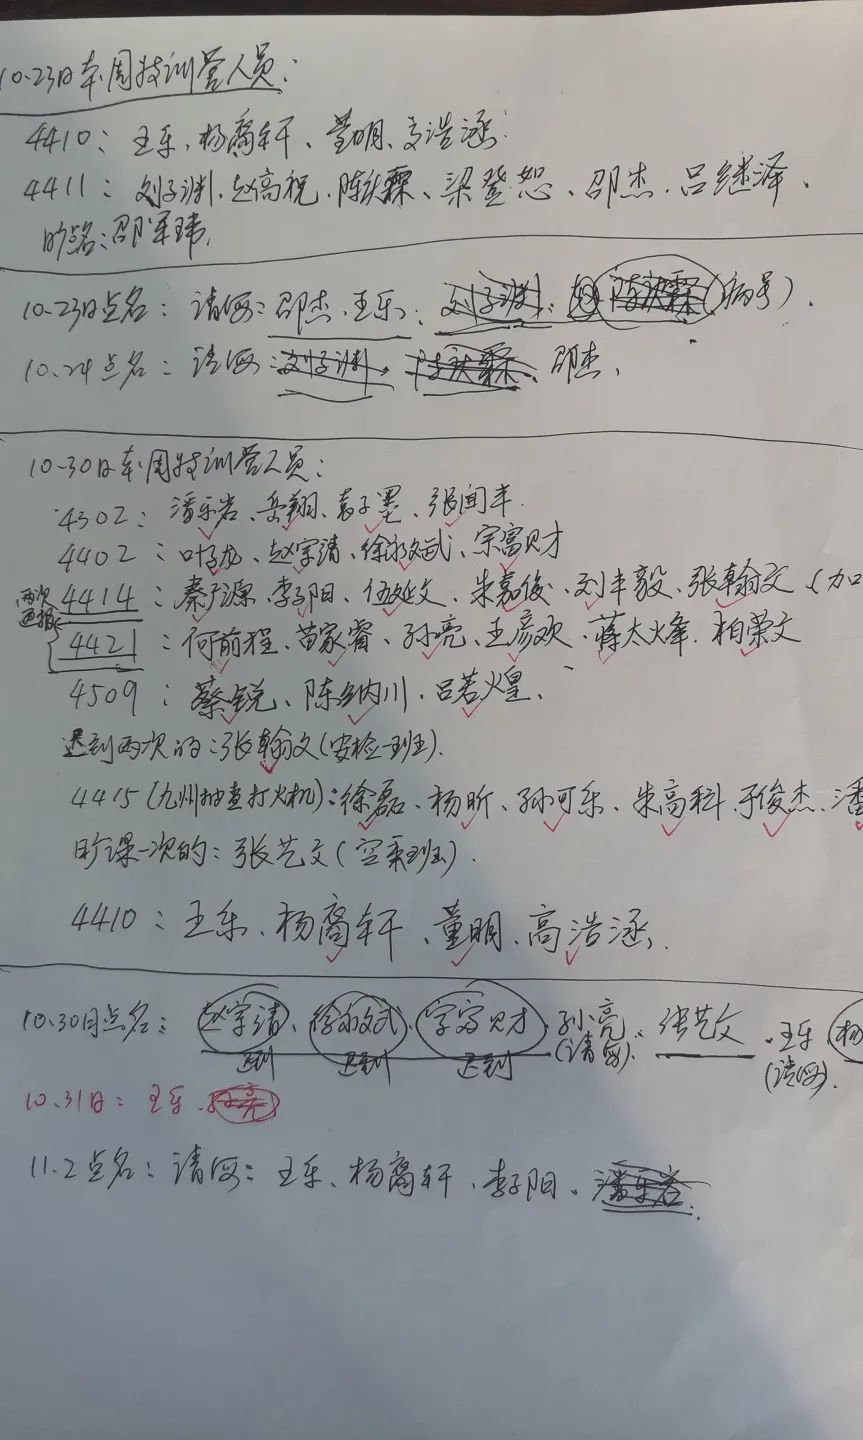 10.23日本周特训营人员:
4410: 王乐、杨裔轩、董明、高浩涵.
4411: 刘子渊、赵高祝、陈钬霖、梁登恕、邵杰、吕继泽、
旷点名: 邵军玮,
10.23日点名: 请假: 邵杰、王乐、刘子渊、陈钬霖(病号).
10.24点名: 请假: 刘子渊、陈钬霖、邵杰、
10.30日本周特训营人员:
4302: 潘乐岩、岳翔、袁子墨、张闻丰.
4402: 叶龙、赵宇清、徐永斌、宗富财
两次
通报
4414: 秦广源、李子阳、伍延文、朱嘉俊、刘丰毅、张翰文、(加
4421: 何前程、苗家睿、孙亮、王彦欢、蒋太火锋、柏荣文
4509: 蔡锐、陈纳川、吕若煌、
迟到两次的: 张翰文(安检一班).
4415(九州抽查打火机): 徐磊、杨昕、孙可乐、朱高科、于俊杰、潘
旷课一次的: 张艺文(空乘班).
4410: 王乐、杨裔轩、董明、高浩涵.
10.30日点名: 赵宇清、徐永斌、宗富财、孙亮(请假)、张艺文、王乐(请假)、杨
迟到 迟到 迟到
10.31日: 王乐、孙亮
11.2点名: 请假: 王乐、杨裔轩、李子阳、潘乐岩.